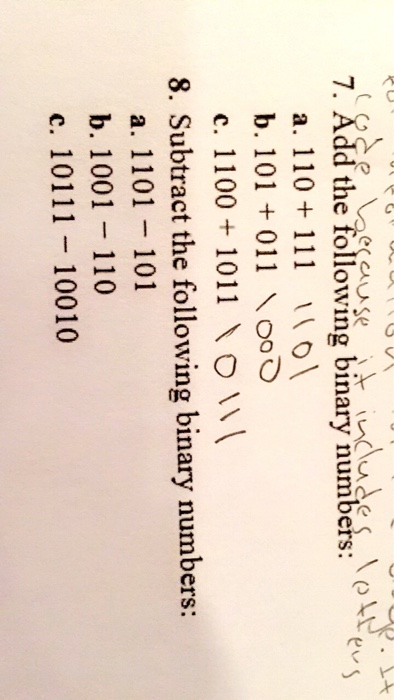 code because it includes letters
7. Add the following binary numbers:
a. 110 + 111 1101
b. 101 + 011 1000
c. 1100 + 1011 10111
8. Subtract the following binary numbers:
a. 1101 − 101
b. 1001 − 110
c. 10111 − 10010